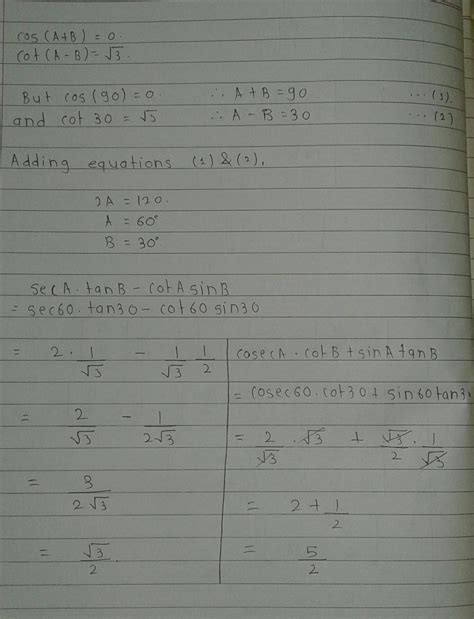 cos(A+B) = 0.
cot(A-B) = √3.
But cos(90) = 0. ∴ A+B = 90 ...(1).
and cot 30 = √3 ∴ A-B = 30 ...(2)
Adding equations (1) & (2),
2A = 120.
A = 60°
B = 30°
secA·tanB - cotA sinB
= sec60·tan30 - cot60 sin30
= 2·1/√3 - 1/√3 1/2
= 2/√3 - 1/2√3
= 3/2√3
= √3/2.
cosecA·cotB + sinA tanB
= cosec60·cot30 + sin60 tan3
= 2/√3·√3 + √3/2·1/√3
= 2 + 1/2
= 5/2